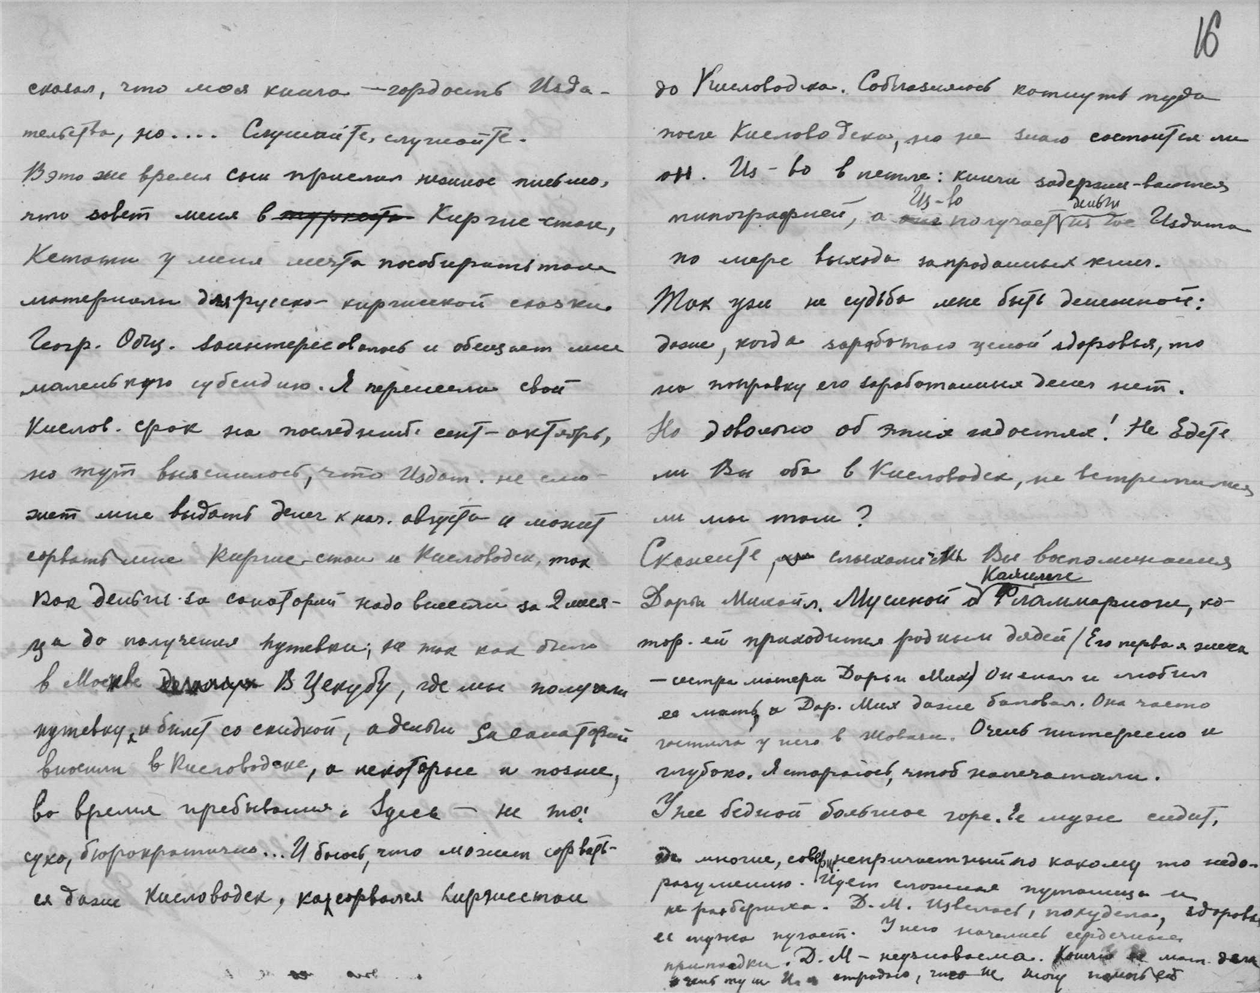 16
сказал, что моя книга — гордость Изда-
тельства, но.... Слушайте, слушайте.
В это же время сын прислал нежное письмо,
что зовет меня в Киргис-стан,
Кстати у меня мечта пособирать там
материалы для русско-киргисской сказки.
Геогр. Общ. заинтересовалось и обещает мне
маленькую субсидию. Я перенесла свой
Кислов. срок на последний: сент-октябрь,
но тут выяснилось, что Издат. не смо-
жет мне выдать денег к нач. августа и может
сорвать мне Киргис-стан и Кисловодск, так
как деньги за санаторий надо внести за 2 меся-
ца до получения путевки; не так как было
в Москве В Цекубу, где мы получали
путевку, и билет со скидкой, а деньги за санаторий
вносили в Кисловодске, а некоторые и позже,
во время пребывания. Здесь — не то!
сухо, бюрократично... И боюсь, что может сорвать-
ся даже Кисловодск, как сорвался Киргисстан
до Кисловодска. Соблазняюсь катнуть туда
после Кисловодска, но не знаю состоится ли
он. Из-во в петле: книги задержи-ваются
типографией, а Из-во получает деньги из Гос Издата
по мере выхода запроданных книг.
Так уж не судьба мне быть денежной:
даже, когда заработаю ценой здоровья, то
на поправку его заработанных денег нет.
Но довольно об этих гадостях! Не Едете
ли Вы оба в Кисловодск, не встретимся
ли мы там?
Скажите, слыхали-ль Вы воспоминания
Дарьи Михайл. Мусиной о Камилле Фламмарионе, ко-
тор. ей приходится родным дядей (Его первая жена
— сестра матери Дарьи Мих) Он знал и любил
ее мать, а Дар. Мих даже баловал. Она часто
гостила у него в Жовизи. Очень интересно и
глубоко. Я стараюсь, чтоб напечатали.
У нее бедной большое горе. Ее муж сидит,
многие, совершен. непричастный по какому то недо-
разумению. Идет сложная путаница и
неразбериха. Д.М. Извелась, похудела, здоровье
ее мужа пугает. У него начались сердечные
припадки. Д.М — неузнаваема. мат. дела
очень туги И я страдаю, что не могу помочь ей